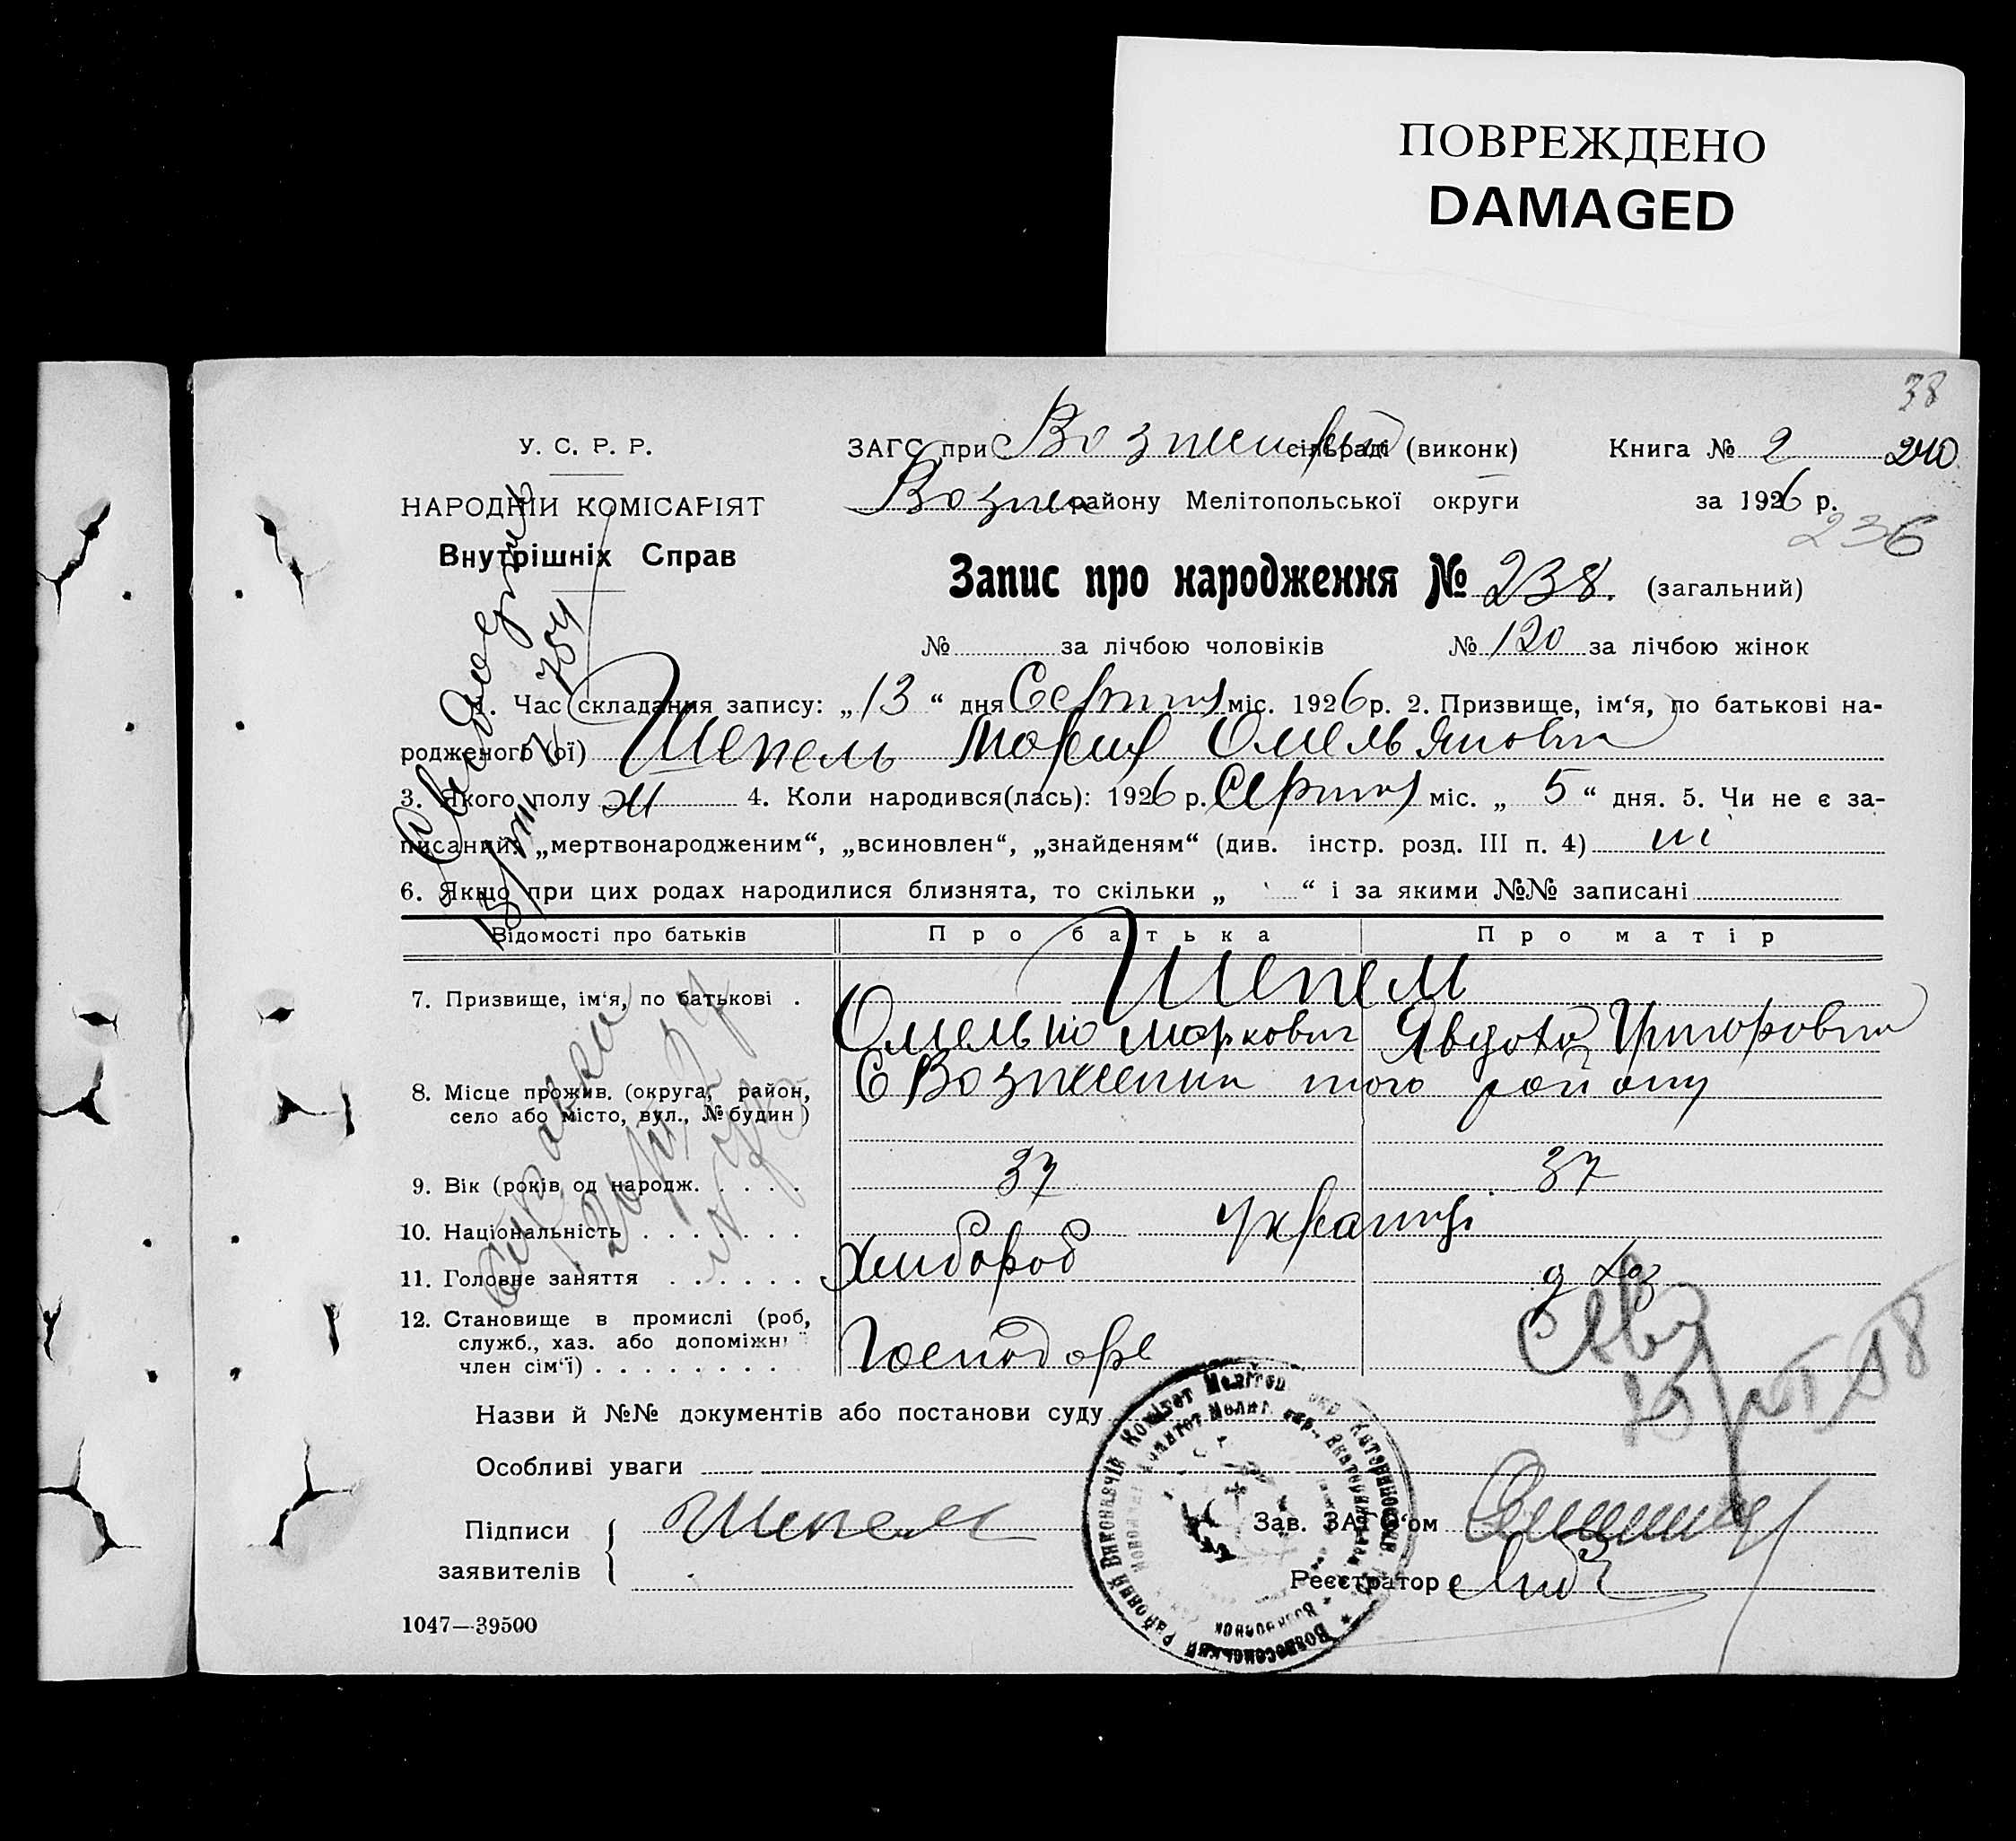 ПОВРЕЖДЕНО
DAMAGED
38
У. С. Р. Р.
НАРОДНІЙ КОМІСАРІЯТ
Внутрішніх Справ
ЗАГС при сільраді (виконк)
Возн району Мелітопольської округи
Книга № 2 240
за 1926 р.
236
Запис про народження № 238. (загальний)
№ за лічбою чоловіків № 120 за лічбою жінок
1. Час складання запису: „13“ дня Серпня міс. 1926 р. 2. Призвище, ім‘я, по батькові на-
родженого (ої) Шепель Мария Омельяновна
3. Якого полу ж 4. Коли народився(лась): 1926 р. Серпня міс. „5“ дня. 5. Чи не є за-
писаний: „мертвонародженим“, „всиновлен“, „знайденям“ (див. інстр. розд. III п. 4) ні
6. Якщо при цих родах народилися близнята, то скільки „ “ і за якими №№ записані
Відомості про батьків Про батька Про матір
7. Призвище, ім‘я, по батькові . Шепель
Омелько Маркович Явдоха
8. Місце прожив. (округа, район,
село або місто, вул., № будин) С Вознесенка того району
9. Вік (років од народж. . . . . 37 37
10. Національність . . . . . . . українці
11. Головне заняття . . . . . . Хлибороб д хаз
12. Становище в промислі (роб,
служб., хаз. або допоміжні
член сім‘ї) . . . . . . . . . Господарь
Назви й №№ документів або постанови суду
Особливі уваги
Підписи
заявителів
Шепель
Зав. ЗАГС‘ом
Реєстратор
1047—39500